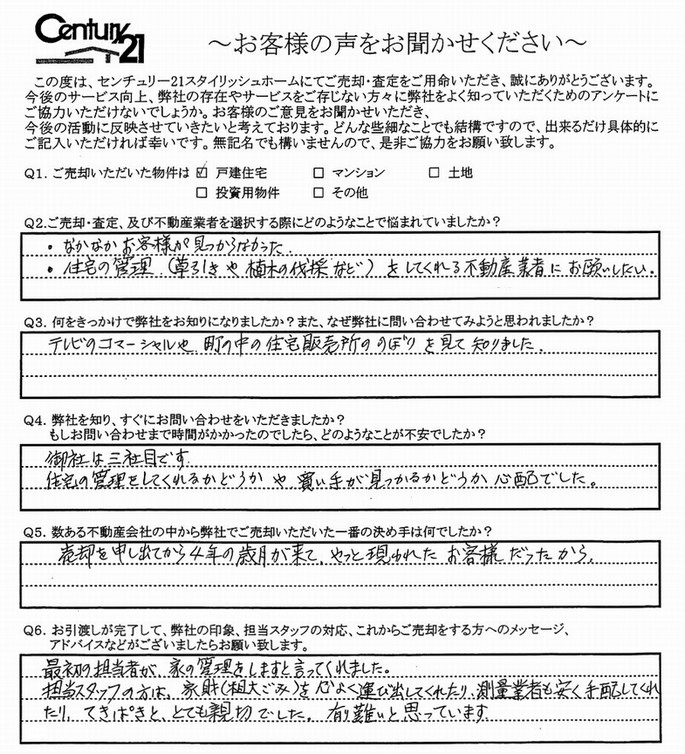 Century 21
～お客様の声をお聞かせください～
この度は、センチュリー21スタイリッシュホームにてご売却・査定をご用命いただき、誠にありがとうございます。
今後のサービス向上、弊社の存在やサービスをご存じない方々に弊社をよく知っていただくためのアンケートに
ご協力いただけないでしょうか。お客様のご意見をお聞かせいただき、
今後の活動に反映させていきたいと考えております。どんな些細なことでも結構ですので、出来るだけ具体的に
ご記入いただければ幸いです。無記名でも構いませんので、是非ご協力をお願い致します。
Q1. ご売却いただいた物件は ☑ 戸建住宅 □ マンション □ 土地
□ 投資用物件 □ その他
Q2.ご売却・査定、及び不動産業者を選択する際にどのようなことで悩まれていましたか？
・なかなかお客様が見つからなかった.
・住宅の管理（草引きや植木の伐採など）をしてくれる不動産業者にお願いしたい。
Q3. 何をきっかけで弊社をお知りになりましたか？また、なぜ弊社に問い合わせてみようと思われましたか？
テレビのコマーシャルや、町の中の住宅販売所ののぼりを見て知りました.
Q4. 弊社を知り、すぐにお問い合わせをいただきましたか？
もしお問い合わせまで時間がかかったのでしたら、どのようなことが不安でしたか？
御社は三社目です.
住宅の管理をしてくれるかどうかや買い手が見つかるかどうか心配でした。
Q5. 数ある不動産会社の中から弊社でご売却いただいた一番の決め手は何でしたか？
売却を申し出てから4年の歳月が来て、やっと現われたお客様だったから.
Q6. お引渡しが完了して、弊社の印象、担当スタッフの対応、これからご売却をする方へのメッセージ、
アドバイスなどがございましたらお願い致します。
最初の担当者が、家の管理をしますと言ってくれました。
担当スタッフの方は、家財(粗大ごみ)を心よく運び出してくれたり、測量業者も安く手配してくれ
たり、てきぱきと、とても親切でした。有り難いと思っています.